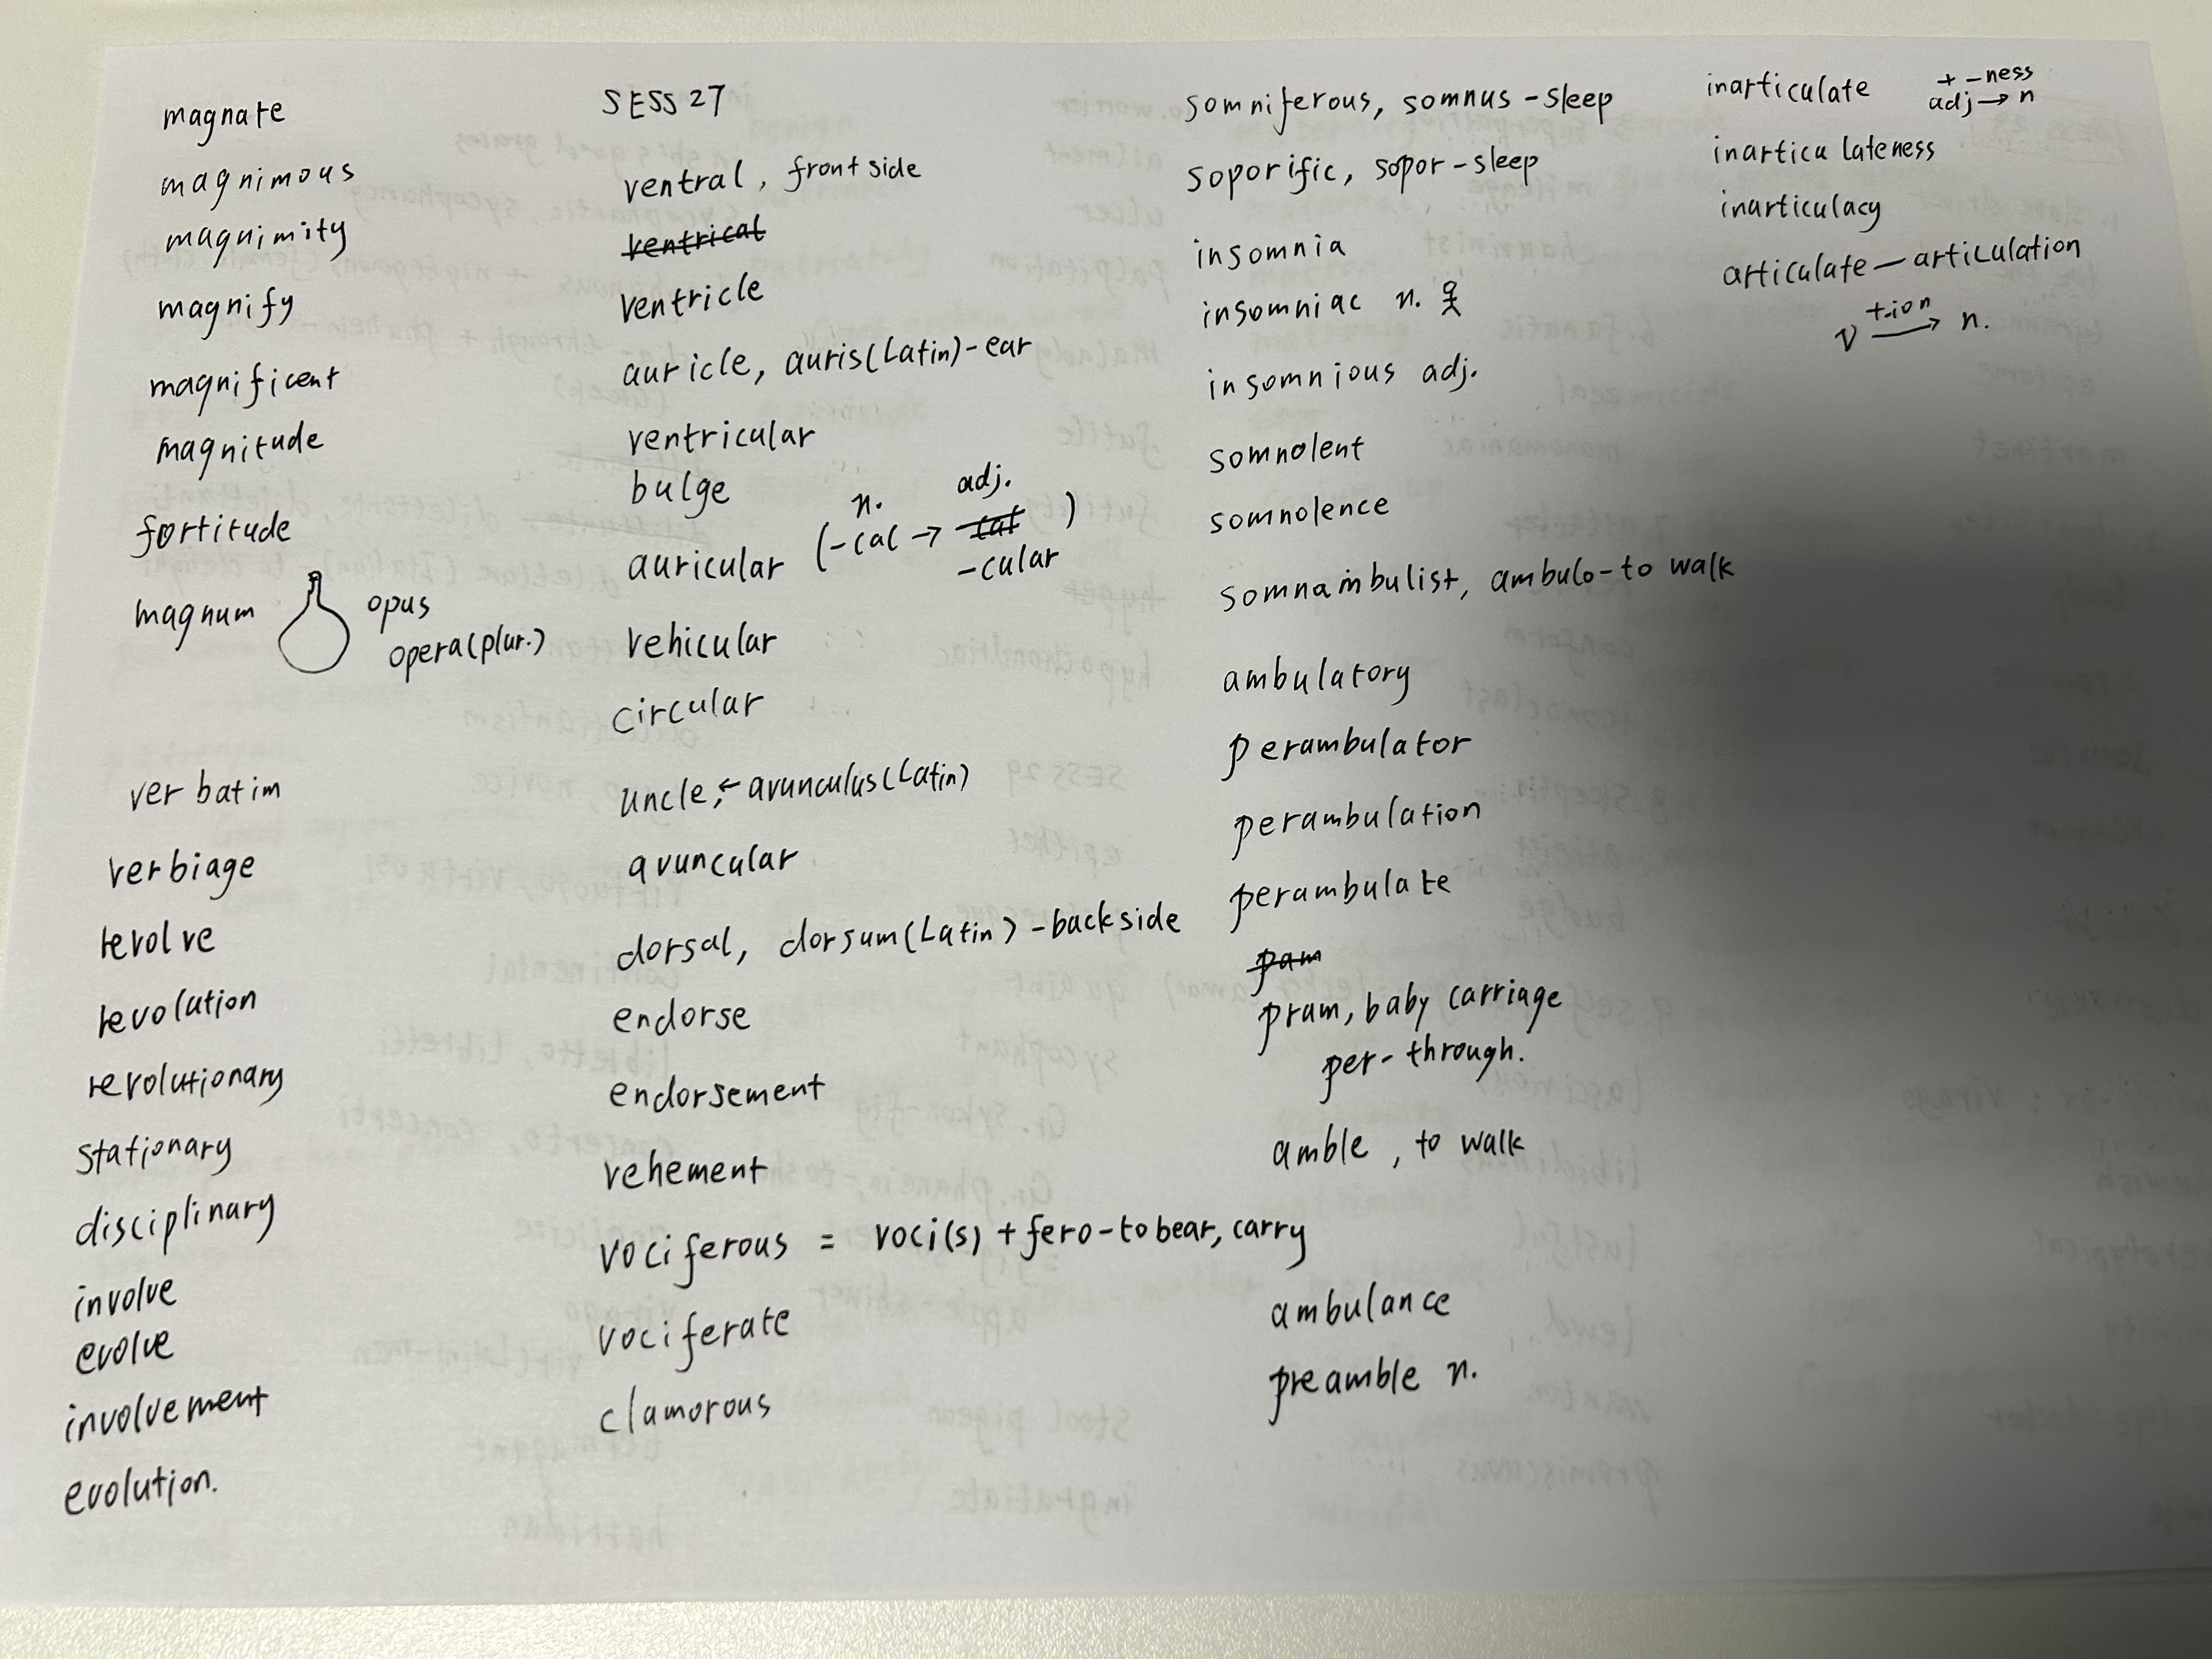 magnate
magnimous
magnimity
magnify
magnificent
magnitude
fortitude
magnum opus
opera(plur.)
verbatim
verbiage
revolve
revolution
revolutionary
stationary
disciplinary
involve
evolve
involvement
evolution.
SESS 27
ventral, front side
ventrical
ventricle
auricle, auris(Latin)-ear
ventricular
bulge
n. adj.
auricular (-cal → cal )
-cular
vehicular
circular
uncle, ← avunculus(Latin)
avuncular
dorsal, dorsum(Latin)-backside
endorse
endorsement
vehement
vociferous = voci(s) + fero-to bear, carry
vociferate
clamorous
somniferous, somnus-sleep
soporific, sopor-sleep
insomnia
insomniac n.
insomnious adj.
somnolent
somnolence
somnambulist, ambulo-to walk
ambulatory
perambulator
perambulation
perambulate
pam
pram, baby carriage
per-through.
amble, to walk
ambulance
preamble n.
inarticulate + -ness
adj → n
inarticulateness
inarticulacy
articulate — articulation
+-ion
v → n.